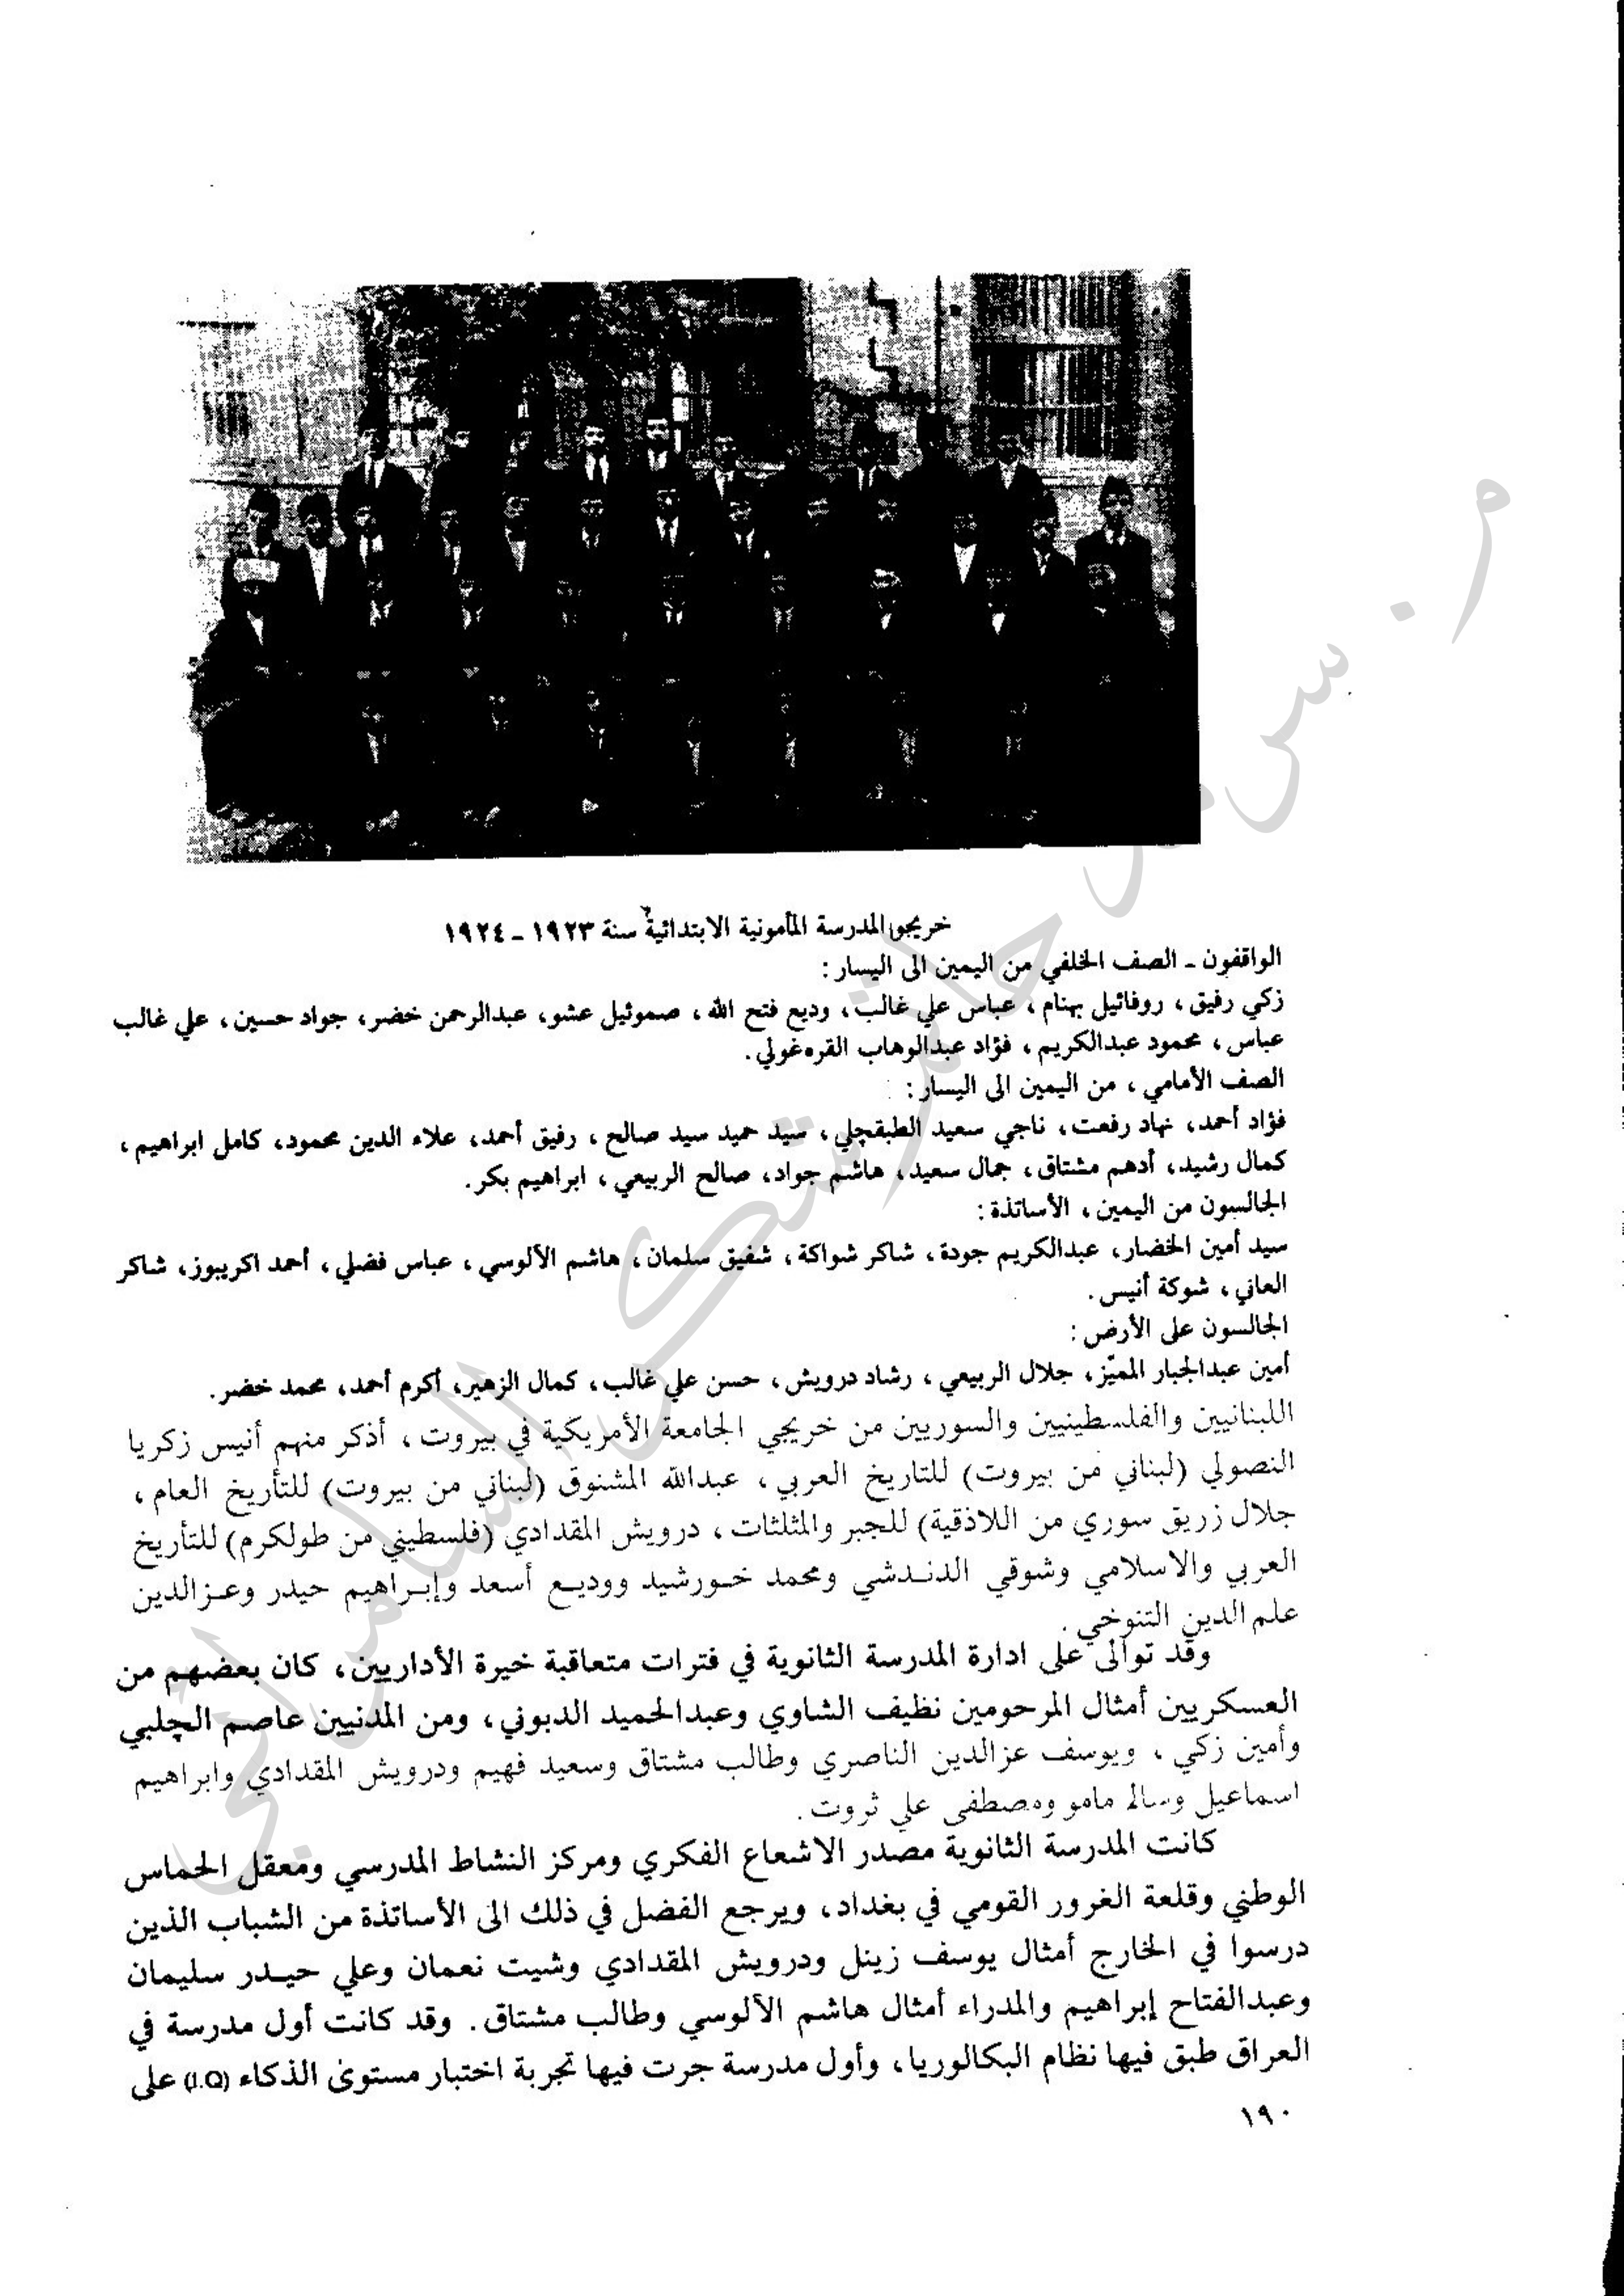 خريجو المدرسة المأمونية الابتدائية سنة ١٩٢٣ - ١٩٢٤
الواقفون - الصف الخلفي من اليمين الى اليسار :
زكي رفيق ، روفائيل بهنام ، عباس علي غالب ، وديع فتح الله ، صموئيل عشو، عبدالرحمن خضر، جواد حسين، علي غالب
عباس ، محمود عبدالكريم ، فؤاد عبدالوهاب القره غولي.
الصف الأمامي ، من اليمين الى اليسار :
فؤاد أحمد، نهاد رفعت، ناجي سعيد الطبقچلي، سيد حميد سيد صالح ، رفيق أحمد، علاء الدين محمود، كامل ابراهيم ،
كمال رشيد، أدهم مشتاق، جمال سعيد، هاشم جواد، صالح الربيعي ، ابراهيم بكر.
الجالسون من اليمين ، الأساتذة :
سيد أمين الخضار، عبدالكريم جودة، شاكر شواكة، شفيق سلمان، هاشم الآلوسي ، عباس فضلي ، أحمد اكريبوز، شاكر
العاني ، شوكة أنيس .
الجالسون على الأرض :
أمين عبدالجبار المميّز، جلال الربيعي ، رشاد درويش ، حسن علي غالب، كمال الزهير، أكرم أحمد، محمد خضر.
اللبنانيين والفلسطينيين والسوريين من خريجي الجامعة الأمريكية في بيروت ، أذكر منهم أنيس زكريا
النصولي (لبناني من بيروت) للتاريخ العربي ، عبدالله المشنوق (لبناني من بيروت) للتأريخ العام ،
جلال زريق سوري من اللاذقية) للجبر والمثلثات ، درويش المقدادي (فلسطيني من طولكرم) للتأريخ
العربي والاسلامي وشوقي الدندشي ومحمد خورشيد ووديع أسعد وإبراهيم حيدر وعزالدين
علم الدين التنوخي .
وقد توالى على ادارة المدرسة الثانوية في فترات متعاقبة خيرة الأداريين، كان بعضهم من
العسكريين أمثال المرحومين نظيف الشاوي وعبدالحميد الدبوني، ومن المدنيين عاصم الچلبي
وأمين زكي ، ويوسف عزالدين الناصري وطالب مشتاق وسعيد فهيم ودرويش المقدادي وابراهيم
اسماعيل وسالم مامو ومصطفى علي ثروت .
كانت المدرسة الثانوية مصدر الاشعاع الفكري ومركز النشاط المدرسي ومعقل الحماس
الوطني وقلعة الغرور القومي في بغداد، ويرجع الفضل في ذلك الى الأساتذة من الشباب الذين
درسوا في الخارج أمثال يوسف زينل ودرويش المقدادي وشيت نعمان وعلي حيدر سليمان
وعبدالفتاح إبراهيم والمدراء أمثال هاشم الآلوسي وطالب مشتاق . وقد كانت أول مدرسة في
العراق طبق فيها نظام البكالوريا، وأول مدرسة جرت فيها تجربة اختبار مستوى الذكاء (I.Q) على
١٩٠